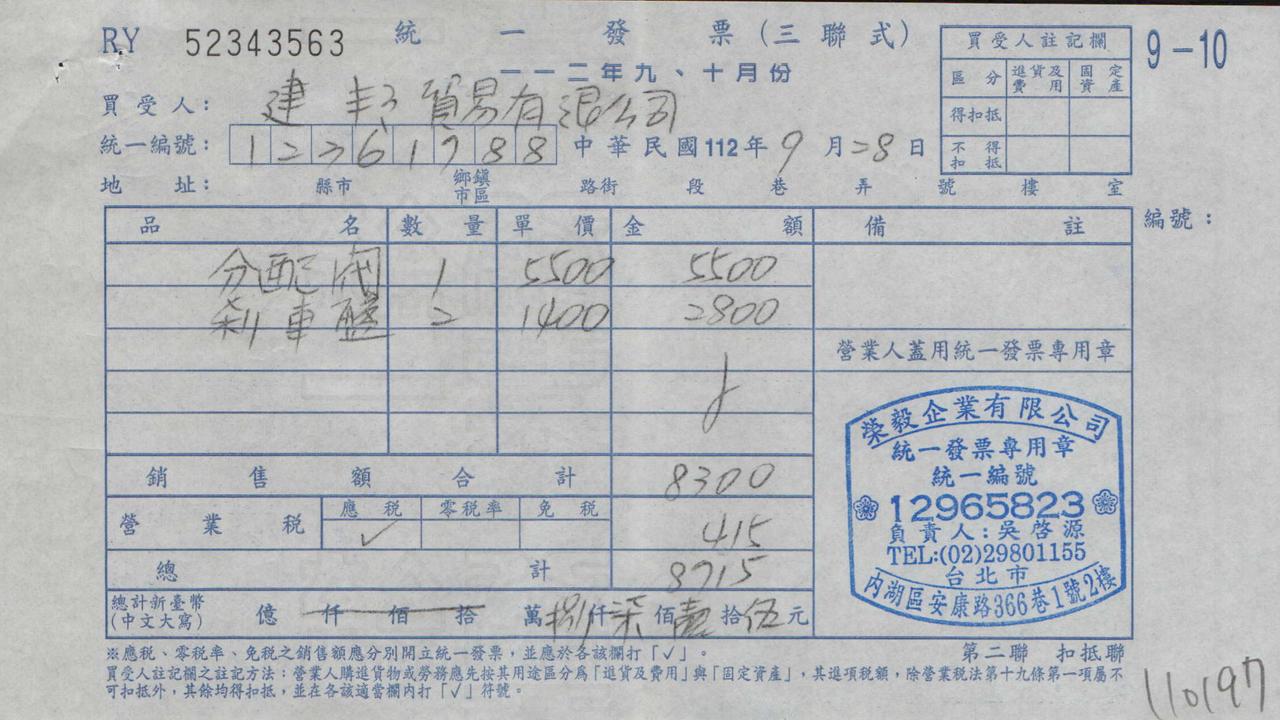 RY 52343563 統一發票(三聯式) 9-10
一一二年九、十月份
買受人: 建邦貿易有限公司
統一編號: 12361788 中華民國112年9月28日
地址: 縣市 鄉鎮市區 路街 段 巷 弄 號 樓 室
買受人註記欄
區分 進貨及費用 固定資產
得扣抵
不得扣抵
編號:
品名 數量 單價 金額 備註
分配閥 1 5500 5500
剎車盤 2 1400 2800
營業人蓋用統一發票專用章
銷售額合計 8300
營業稅 應稅 零稅率 免稅
✓ 415
總計 8715
總計新臺幣(中文大寫) 億仟佰拾萬捌仟柒佰壹拾伍元
榮毅企業有限公司
統一發票專用章
統一編號
12965823
負責人:吳啓源
TEL:(02)29801155
台北市
內湖區安康路366巷1號2樓
※應稅、零稅率、免稅之銷售額應分別開立統一發票,並應於各該欄打「✓」。
第二聯 扣抵聯
買受人註記欄之註記方法:營業人購進貨物或勞務應先按其用途區分為「進貨及費用」與「固定資產」,其進項稅額,除營業稅法第十九條第一項屬不
可扣抵外,其餘均得扣抵,並在各該適當欄內打「✓」符號。
110197